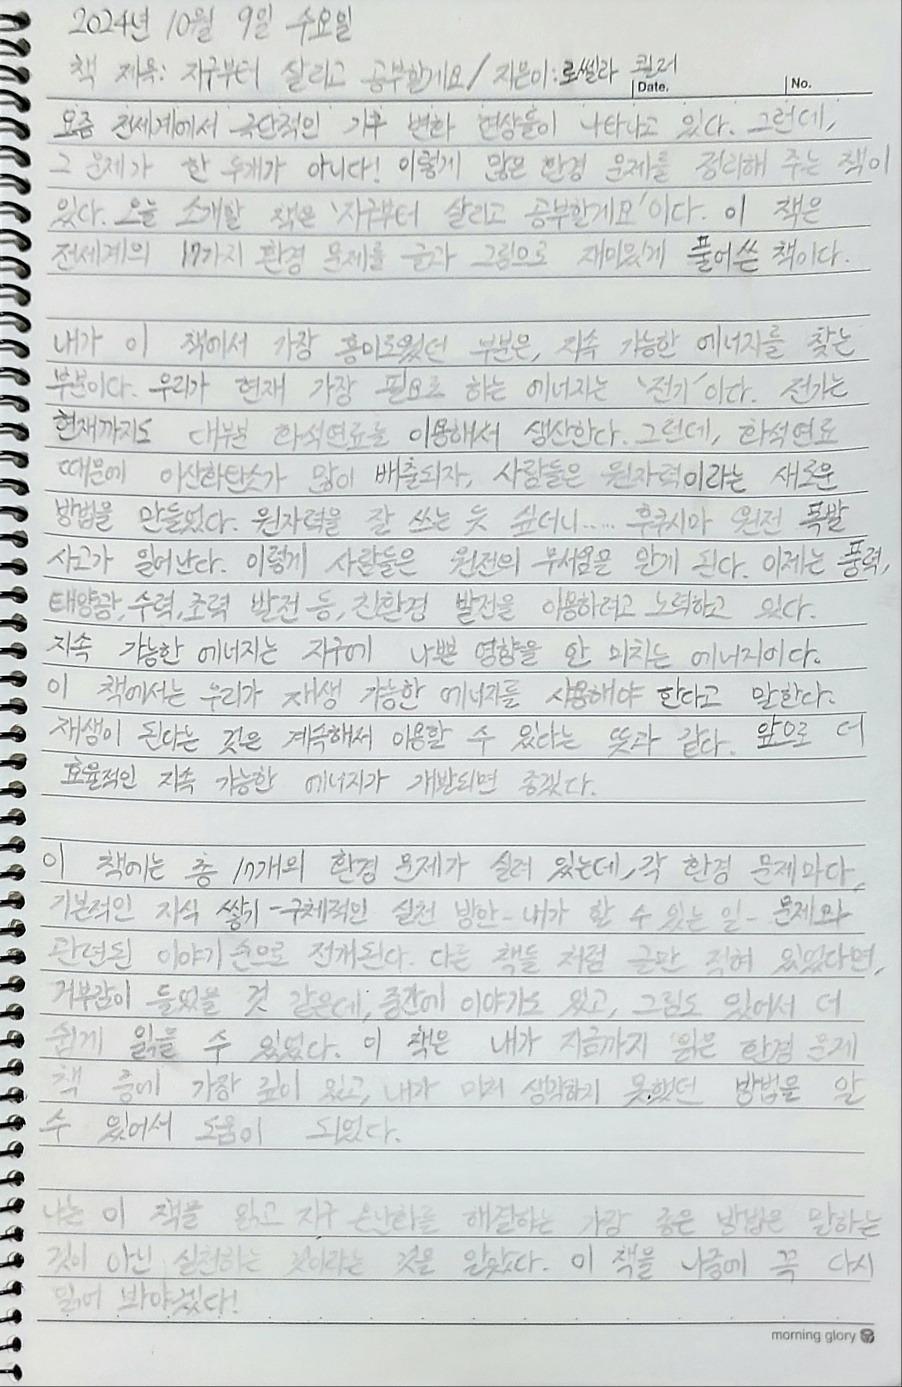 2024년 10월 9일 수요일
책 제목: 지구부터 살리고 공부할게요/ 지은이: 로쎌라 퀼러
Date.
No.
요즘 전세계에서 극단적인 기후 변화 현상들이 나타나고 있다. 그런데,
그 문제가 한 두개가 아니다! 이렇게 많은 환경 문제를 정리해 주는 책이
있다. 오늘 소개할 책은 '지구부터 살리고 공부할게요'이다. 이 책은
전세계의 17가지 환경 문제를 글과 그림으로 재미있게 풀어쓴 책이다.
내가 이 책에서 가장 흥미로웠던 부분은, 지속 가능한 에너지를 찾는
부분이다. 우리가 현재 가장 필요로 하는 에너지는 '전기'이다. 전기는
현재까지도 대부분 화석연료를 이용해서 생산한다. 그런데, 화석연료
때문에 이산화탄소가 많이 배출되자, 사람들은 원자력이라는 새로운
방법을 만들었다. 원자력을 잘 쓰는 듯 싶더니...... 후쿠시마 원전 폭발
사고가 일어난다. 이렇게 사람들은 원전의 무서움을 알게 된다. 이제는 풍력,
태양광, 수력, 조력 발전 등, 친환경 발전을 이용하려고 노력하고 있다.
지속 가능한 에너지는 지구에 나쁜 영향을 안 미치는 에너지이다.
이 책에서는 우리가 재생 가능한 에너지를 사용해야 한다고 말한다.
재생이 된다는 것은 계속해서 이용할 수 있다는 뜻과 같다. 앞으로 더
효율적인 지속 가능한 에너지가 개발되면 좋겠다.
이 책에는 총 17개의 환경 문제가 실려 있는데, 각 환경 문제마다,
기본적인 지식 쌓기 - 구체적인 실천 방안 - 내가 할 수 있는 일 - 문제와
관련된 이야기 순으로 전개된다. 다른 책들 처럼 글만 적혀 있었다면,
거부감이 들었을 것 같은데, 중간에 이야기도 있고, 그림도 있어서 더
쉽게 읽을 수 있었다. 이 책은 내가 지금까지 읽은 환경 문제
책 중에 가장 깊이 있고, 내가 미처 생각하지 못했던 방법을 알
수 있어서 도움이 되었다.
나는 이 책을 읽고 지구 온난화를 해결하는 가장 좋은 방법은 말하는
것이 아닌 실천하는 것이라는 것을 알았다. 이 책을 나중에 꼭 다시
읽어 봐야겠다!
morning glory